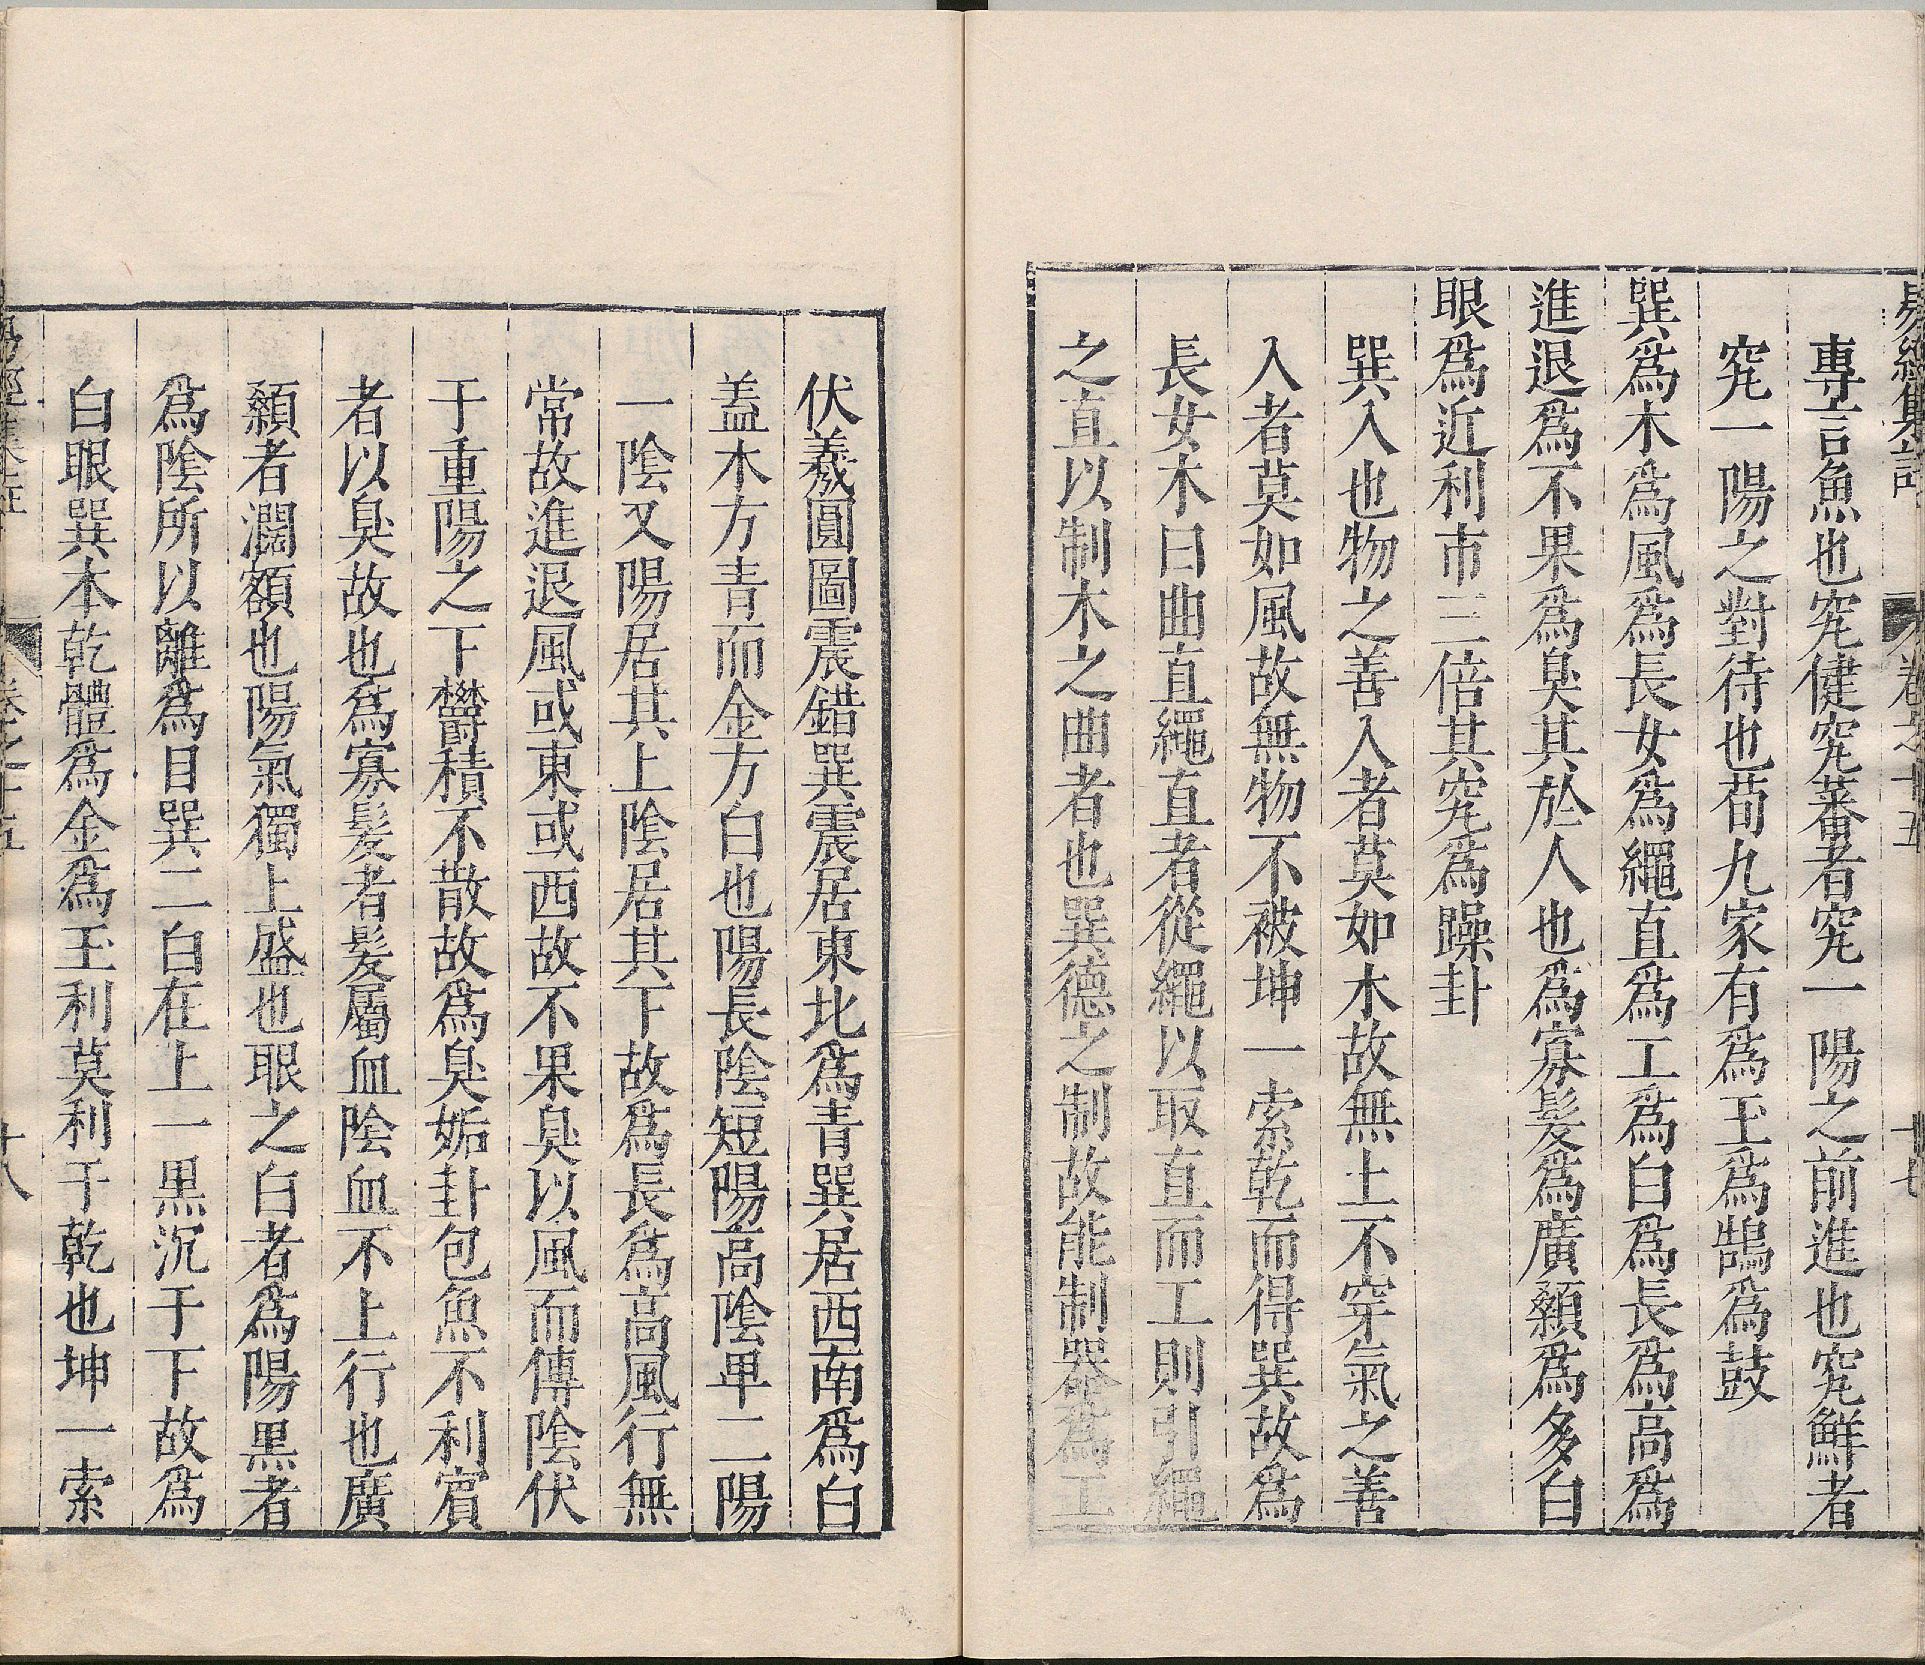 易經集註 卷之十五 十七
專言魚也究健究蕃者究一陽之前進也究鮮者
究一陽之對待也荀九家有爲玉爲鵠爲鼓
巽爲木爲風爲長女爲繩直爲工爲白爲長爲高爲
進退爲不果爲臭其於人也爲寡髮爲廣顙爲多白
眼爲近利市三倍其究爲躁卦
巽入也物之善入者莫如木故無土不穿氣之善
入者莫如風故無物不被坤一索乾而得巽故爲
長女木曰曲直繩直者從繩以取直而工則引繩
之直以制木之曲者也巽德之制故能制器爲工
伏羲圓圖震錯巽震居東北爲青巽居西南爲白
蓋木方青而金方白也陽長陰短陽高陰卑二陽
一陰又陽居其上陰居其下故爲長爲高風行無
常故進退風或東或西故不果臭以風而傳陰伏
于重陽之下欝積不散故爲臭姤卦包魚不利賓
者以臭故也爲寡髮者髮屬血陰血不上行也廣
顙者濶額也陽氣獨上盛也眼之白者爲陽黒者
爲陰所以離爲目巽二白在上一黒沉于下故爲
白眼巽本乾體爲金爲玉利莫利于乾也坤一索
易經集註 卷之十五 十八